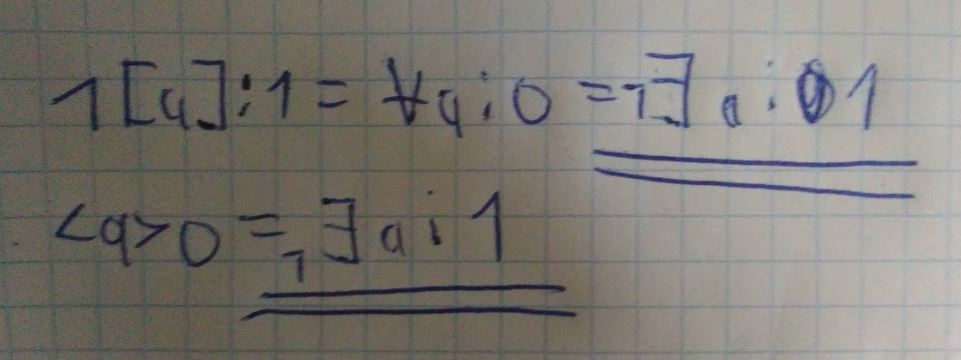 1[a]:1 = ∀a:0 = ¬∃ a:1
<a>0 = ¬∃a:1